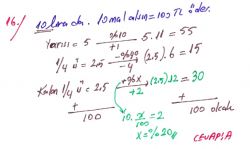 16./ 10 lira da. 10 mal alsın = 100 TL öder.
Yarısı = 5 %10 +1 5.11 = 55
1/4 ü = 2.5 -%40 -4 (2.5).6 = 15
Kalan 1/4 ü = 2.5 +%x +2 (2.5).12 = 30
+ 100 + 100 olcak.
10. x/100 = 2
x = %20
CEVAP: A